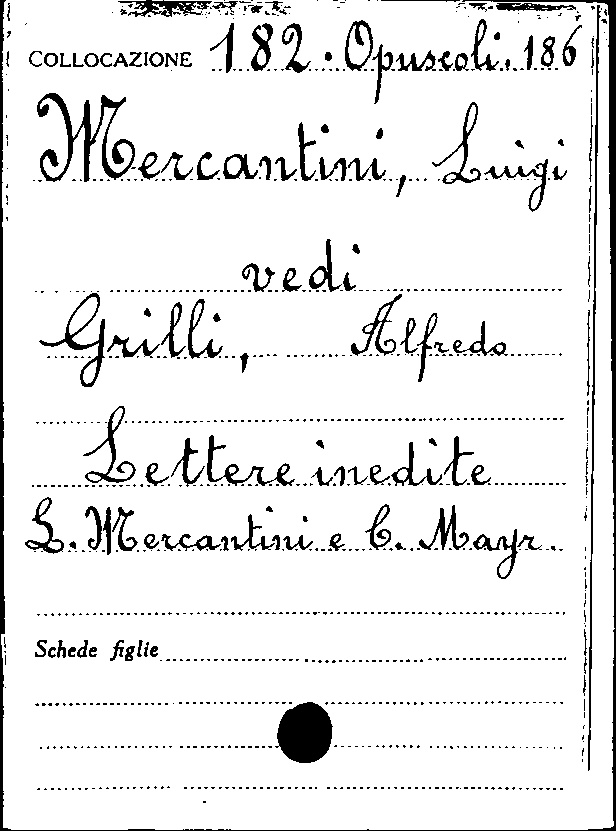 COLLOCAZIONE 182. Opuscoli. 186
Mercantini, Luigi
vedi
Grilli, Alfredo
Lettere inedite
L. Mercantini e C. Mayr.
Schede figlie